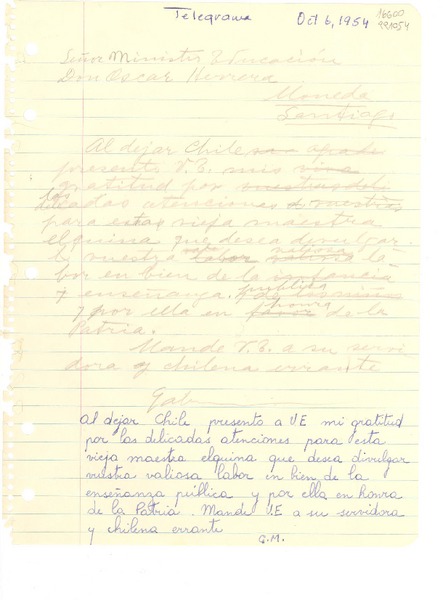 Telegrama Oct 6, 1954 16600
991054
Señor Ministro Educación
Don Oscar Herrera
Moneda
Santiago
Al dejar Chile
presento V.E. mis
gratitud por
delicadas atenciones
para esta vieja maestra
elquina que desea divulgar
vuestra labor valiosa la-
bor en bien de la infancia
y enseñanza. pública
y por ella en favor honra de la
Patria.
Mande V.E. a su servi
dora y chilena errante
Gab
Al dejar Chile presento a VE mi gratitud
por las delicadas atenciones para esta
vieja maestra elquina que desea divulgar
vuestra valiosa labor en bien de la
enseñanza pública y por ella en honra
de la Patria. Mande V.E a su servidora
y chilena errante
G.M.